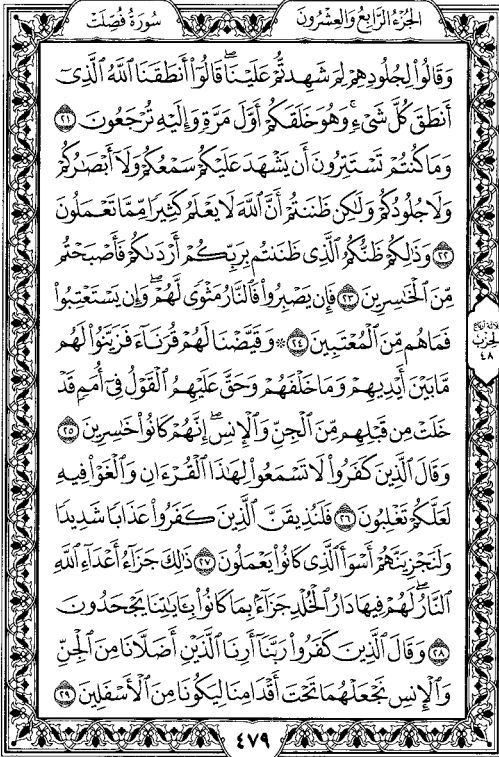 الجزء الرابع والعشرون
سورة فصلت
وَقَالُوا۟ لِجُلُودِهِمْ لِمَ شَهِدتُّمْ عَلَيْنَا ۖ قَالُوٓا۟ أَنطَقَنَا ٱللَّهُ ٱلَّذِىٓ
أَنطَقَ كُلَّ شَىْءٍ ۚ وَهُوَ خَلَقَكُمْ أَوَّلَ مَرَّةٍ وَإِلَيْهِ تُرْجَعُونَ ٢١
وَمَا كُنتُمْ تَسْتَتِرُونَ أَن يَشْهَدَ عَلَيْكُمْ سَمْعُكُمْ وَلَآ أَبْصَـٰرُكُمْ
وَلَا جُلُودُكُمْ وَلَـٰكِن ظَنَنتُمْ أَنَّ ٱللَّهَ لَا يَعْلَمُ كَثِيرًا مِّمَّا تَعْمَلُونَ
٢٢ وَذَٰلِكُمْ ظَنُّكُمُ ٱلَّذِى ظَنَنتُم بِرَبِّكُمْ أَرْدَىٰكُمْ فَأَصْبَحْتُم
مِّنَ ٱلْخَـٰسِرِينَ ٢٣ فَإِن يَصْبِرُوا۟ فَٱلنَّارُ مَثْوًى لَّهُمْ ۖ وَإِن يَسْتَعْتِبُوا۟
فَمَا هُم مِّنَ ٱلْمُعْتَبِينَ ٢٤ ۞ وَقَيَّضْنَا لَهُمْ قُرَنَآءَ فَزَيَّنُوا۟ لَهُم
مَّا بَيْنَ أَيْدِيهِمْ وَمَا خَلْفَهُمْ وَحَقَّ عَلَيْهِمُ ٱلْقَوْلُ فِىٓ أُمَمٍ قَدْ
خَلَتْ مِن قَبْلِهِم مِّنَ ٱلْجِنِّ وَٱلْإِنسِ ۖ إِنَّهُمْ كَانُوا۟ خَـٰسِرِينَ ٢٥
وَقَالَ ٱلَّذِينَ كَفَرُوا۟ لَا تَسْمَعُوا۟ لِهَـٰذَا ٱلْقُرْءَانِ وَٱلْغَوْا۟ فِيهِ
لَعَلَّكُمْ تَغْلِبُونَ ٢٦ فَلَنُذِيقَنَّ ٱلَّذِينَ كَفَرُوا۟ عَذَابًا شَدِيدًا
وَلَنَجْزِيَنَّهُمْ أَسْوَأَ ٱلَّذِى كَانُوا۟ يَعْمَلُونَ ٢٧ ذَٰلِكَ جَزَآءُ أَعْدَآءِ ٱللَّهِ
ٱلنَّارُ ۖ لَهُمْ فِيهَا دَارُ ٱلْخُلْدِ ۖ جَزَآءًۢ بِمَا كَانُوا۟ بِـَٔايَـٰتِنَا يَجْحَدُونَ
٢٨ وَقَالَ ٱلَّذِينَ كَفَرُوا۟ رَبَّنَآ أَرِنَا ٱلَّذَيْنِ أَضَلَّانَا مِنَ ٱلْجِنِّ
وَٱلْإِنسِ نَجْعَلْهُمَا تَحْتَ أَقْدَامِنَا لِيَكُونَا مِنَ ٱلْأَسْفَلِينَ ٢٩
ثلاثة أرباع
الحزب
٤٨
٤٧٩